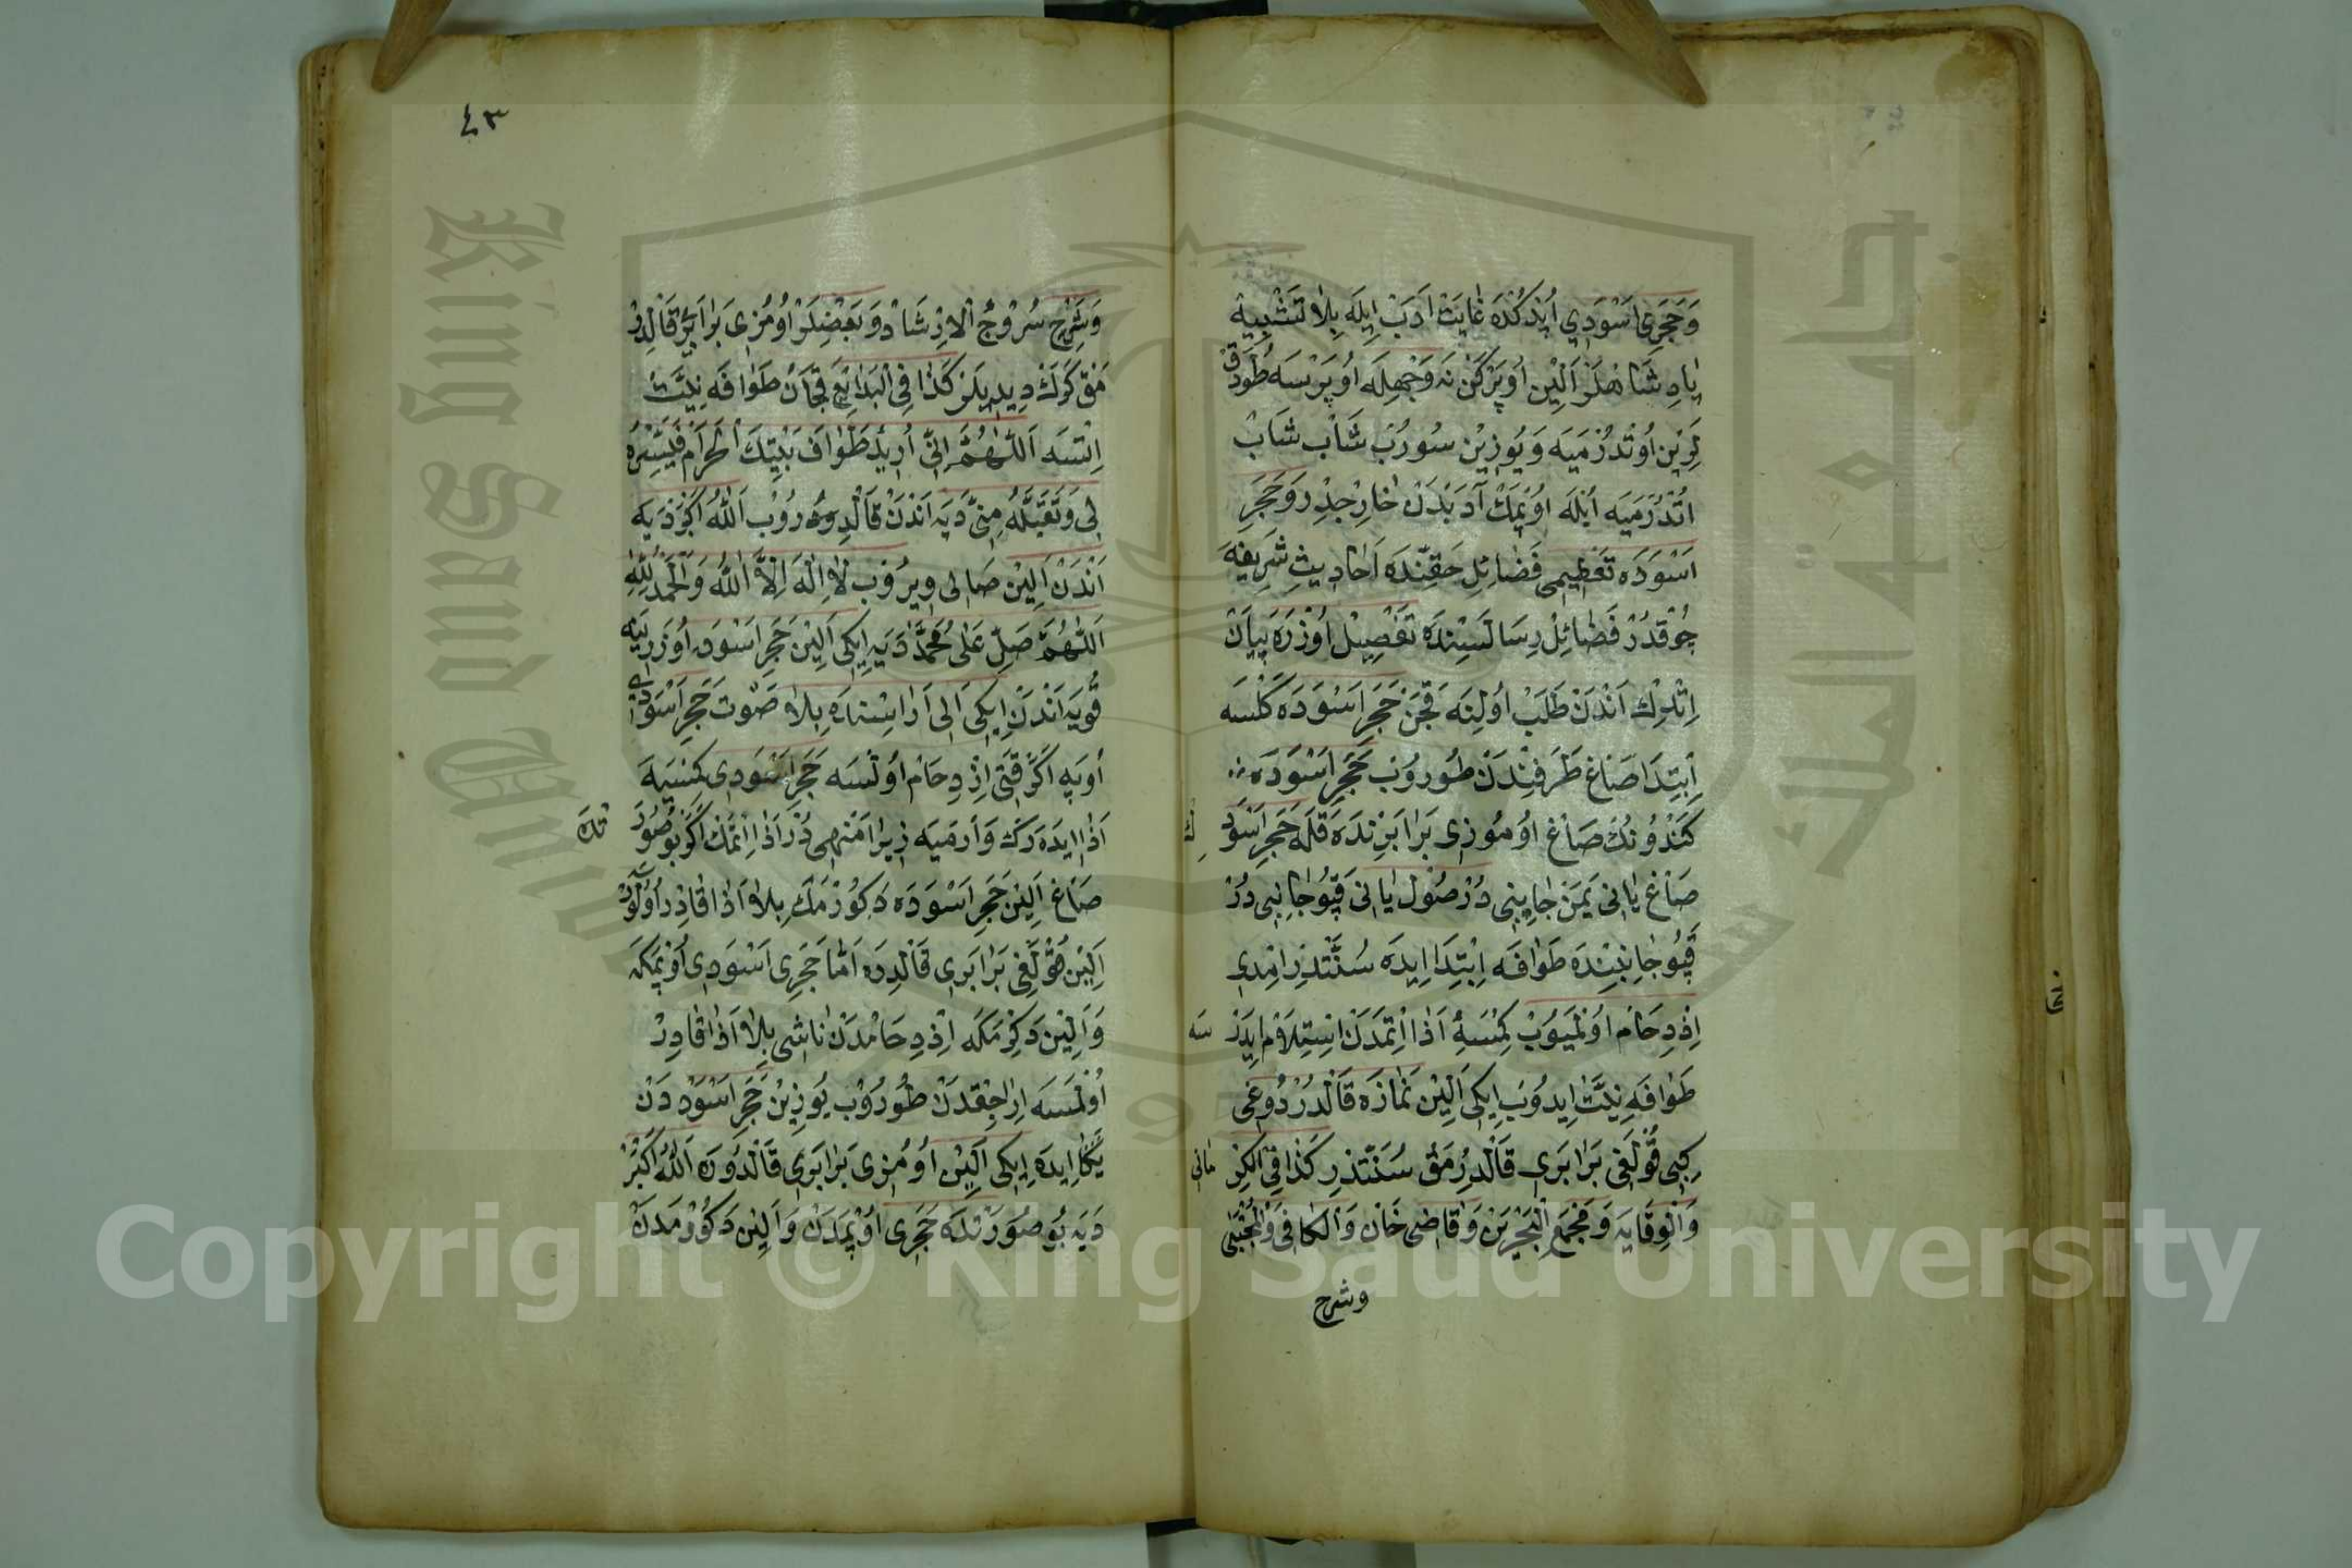 وَحَجَرِى اَسْوَدِي اُپدكْدَه غَايَتْ اَدَبْ اِيلَه بِلَا تَشْبِيهْ
پَادِشَاهْلَرْ اَلِين اُوپَرْكَنْ نَه وَجْهِلَه اُوپَرْسَه طُودَقْ
لَرِين اُوتْدُرْمَيَه وَيُوزِين سُورُبْ شَابْ شَابْ
اُتْدُرْمَيَه اَيْلَه اُوپْمَكْ آدَبْدَنْ خَارِجْدِر وَحَجَرِ
اَسْوَدَه تَعْظِيمِى فَضَائِلِ حَقِّنْدَه اَحَادِيثِ شَرِيفَه
چُوقْدُرْ فَضَائِلْ رِسَالَسِنْدَه تَفْصِيلْ اُوزْرَه بَيَانْ
اِتْدِكْ اَنْدَنْ طَلَبْ اُولِنَه قَچَنْ حَجَرِ اَسْوَدَه كَلْسَه
اِبْتِدَا صَاغْ طَرَفِنْدَنْ طُورُوبْ حَجَرِ اَسْوَدَه
كَنْدُونُكْ صَاغْ اُومُوزِى بَرَابَرِنْدَه قَلَه حَجَرِ اَسْوَدِ
صَاغْ يَانِى يَمَنْ جَانِبِى دُرْ صُولْ يَانِى قَپُو جَانِبِى دُرْ
قَپُو جَانِبِنْدَه طَوَافَه اِبْتِدَا اِيدَه سُنَّتْدِرْ اِمْدِى
اِزْدِحَامْ اُولْمَيُوبْ كِمْسَيِه اَذَا اِتْمَدَنْ اِسْتِلَامْ اِيدَرْ سَه
طَوَافَه نِيَّتْ اِيدُوبْ اِيكِى اَلِينْ نَمَازَه قَالْدُرْدُوغِى
كِبِى قُولَغِى بَرَابَرِى قَالْدُرْمَقْ سُنَّتْدِرْ كَذَا فِى الْكِرْمَانِى
وَالْوِقَايَه وَمَجْمَعِ الْبَحْرَيْنْ وَقَاضِى خَانْ وَالْكَافِى وَالْمُجْتَبَى
وشرح
٤٣
وَشَرْحِ سُرُوجُ الْاِرْشَادْ وَبَعْضِلَرْ اُومُزِى بَرَابَرِى قَالْدُرْ
مَقْ كَرَكْ دِيدِيلَرْ كَذَا فِى الْبَدَائِعْ قَچَانْ طَوَافَه نِيَّتْ
اِتْسَه اَللّٰهُمَّ اِنِّى اُرِيدُ طَوَافَ بَيْتِكَ الْحَرَامِ فَيَسِّرْهُ
لِى وَتَقَبَّلْهُ مِنِّى دَيَه اَنْدَنْ قَالْدُورُوبْ اَللّٰهُ اَكْبَرْ دَيَه
اَنْدَنْ اَلِينْ صَالِى وِيرُوبْ لَا اِلٰهَ اِلَّا اللّٰهُ وَالْحَمْدُ لِلّٰهِ
اَللّٰهُمَّ صَلِّ عَلَى مُحَمَّدْ دَيَه اِيكِى اَلِينْ حَجَرِ اَسْوَدْ اُوزَرِينَه
قُويَه اَنْدَنْ اِيكِى اَلِى اَرَاسِنْدَه بِلَا صَوْتْ حَجَرِ اَسْوَدِى
اُوپَه اَكَرْ قَتِى اِزْدِحَامْ اُولْسَه حَجَرِ اَسْوَدِى كِمْسَيَه
اَذَا اِيدَه رَكْ وَارْمَيَه زِيرَا مَنْهِى دُرْ اَذَا اِتْمَكْ اَكَرْ بُو صُورَتْدَه
صَاغْ اَلِينْ حَجَرِ اَسْوَدَه دَكُورْمَكْ بِلَا اَذَا قَادِرْ اُولُورْسَه
اَلِينْ قُولَغِى بَرَابَرِى قَالْدِرَه اَمَّا حَجَرِى اَسْوَدِى اُوپْمَكَه
وَاَلِينْ دَكِرْمَكَه اِزْدِحَامْدَنْ نَاشِى بِلَا اَذَا قَادِرْ
اُولْمَسَه اِرَاجِقْدَنْ طُورُوبْ يُوزِينْ حَجَرِ اَسْوَدْدَنْ
يَكَا اِيدَه اِيكِى اَلِينْ اُومُزِى بَرَابَرِى قَالْدُورَه اَللّٰهُ اَكْبَرْ
دَيَه بُو صُورَتْدَه حَجَرِى اُوپْمَدَنْ وَاَلِينْ دَكُورْمَدَنْ
Copyright © King Saud University
King Saud University
جامعة الملك سعود